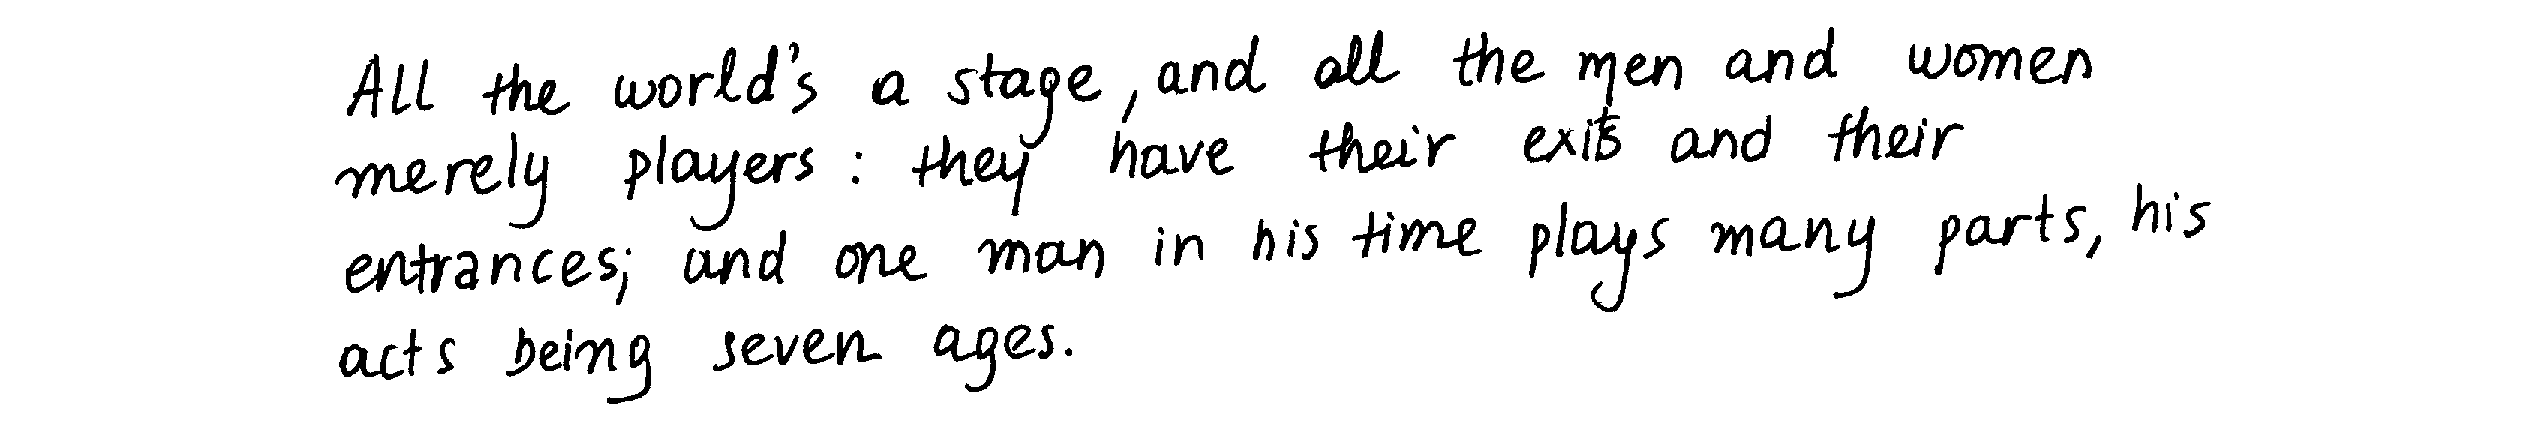 All the world's a stage, and all the men and women
merely players: they have their exits and their
entrances; and one man in his time plays many parts, his
acts being seven ages.